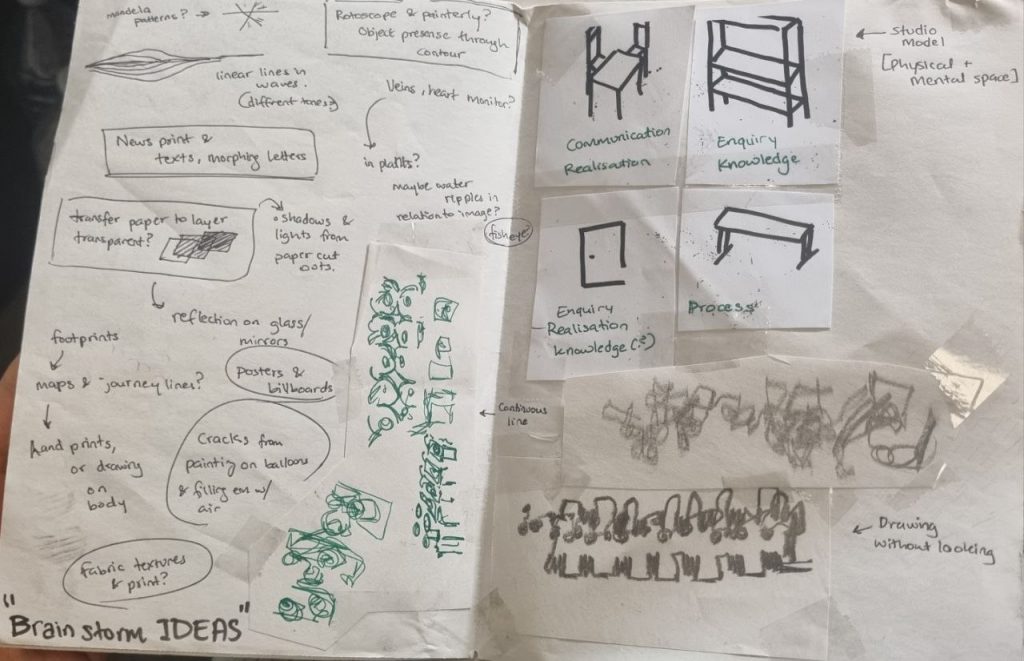 mandela
patterns?
Rotoscope & painterly?
Object presense through
contour
linear lines in
waves.
(different tones?)
Veins, heart monitor?
News point &
texts, morphing letters
in plants?
maybe water
ripples in
relation to image?
fisheye
transfer paper to layer
transparent?
shadows &
lights from
paper cut
oots.
reflection on glass/
mirrors
footprints
maps & journey lines?
posters &
billboards
hand prints,
or drawing
on
body
Cracks from
painting on balloons
& filling em w/
air
Fabric textures
& print?
"Brain storm IDEAS"
Communication
Realisation
Enquiry
Knowledge
Studio
Model
[physical +
mental space]
Enquiry
Realisation
knowledge (?)
Process
Continuous
line
Drawing
without looking